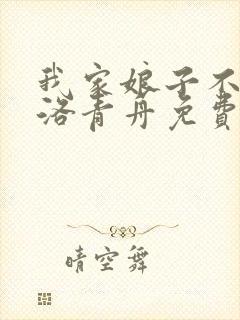 我家娘子不
洛青丹免费
晴空舞